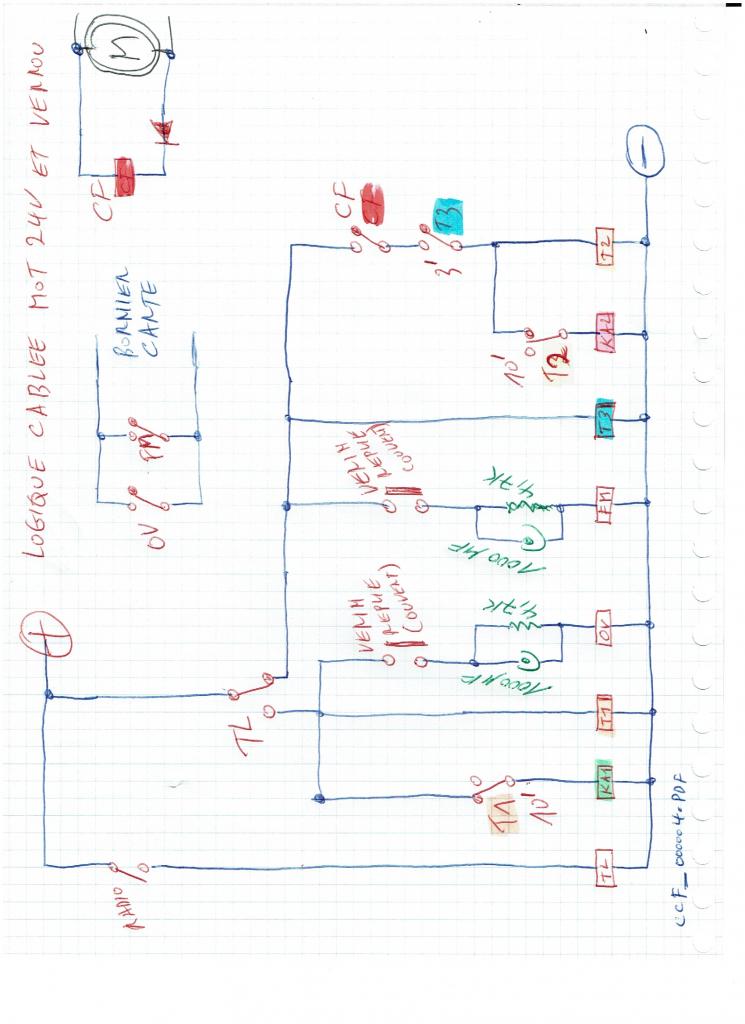 LOGIQUE CABLEE MOT 24V ET VERROU
+
M
CF
CF
BORNIER
CARTE
OV
FM
RADIO
TL
VERIN
REPLIE
(OUVERT)
VERIN
REPLIE
(OUVERT)
CF
T3
3'
T1
10'
1000 µF
4,7K
1000 µF
4,7K
10'
T2
TL
KA1
T1
OV
FM
T3
KA2
T2
−
CCF_000004.PDF